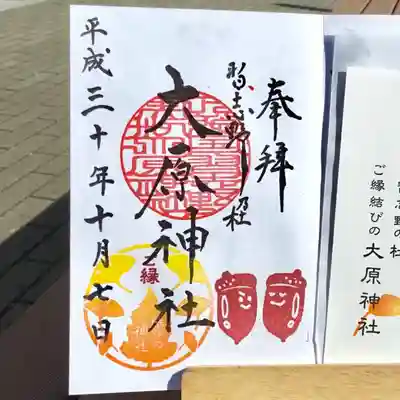 奉拝
習志野ノ杜
大原神社
平成三十年十月七日
ご縁
習志野の杜
ご縁結びの大原神社